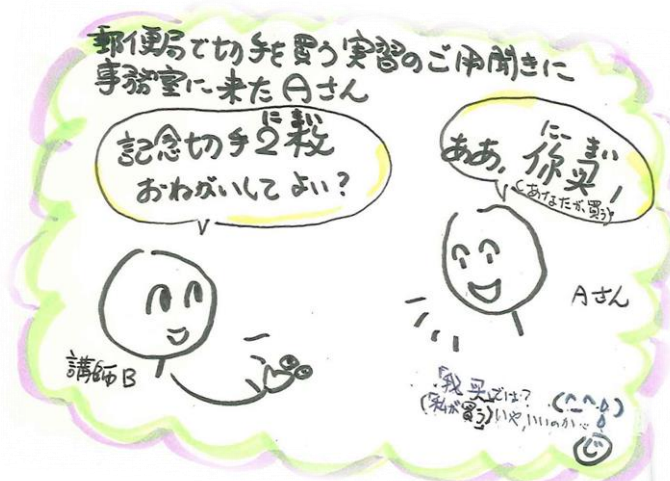 郵便局で切手を買う実習のご用聞きに
事務室に来たAさん
記念切手2枚
にまい
おねがいしてよい？
ああ、你买！
にー まい
(あなたが買う)
講師B
Aさん
「我买」では？
(私が買う)いや、いいのか〜
(^_^;)